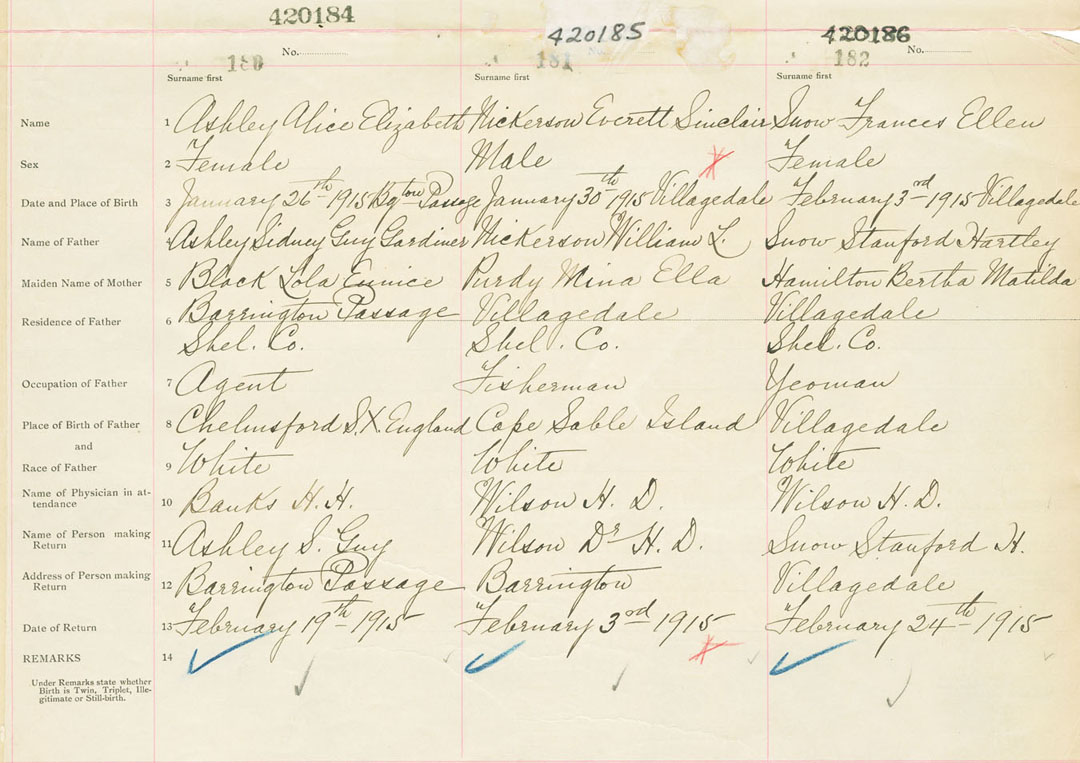 420184 420185 420186
No. No. No.
180 181 182
Surname first Surname first Surname first
Name 1 Ashley Alice Elizabeth Nickerson Everett Sinclair Snow Frances Ellen
Sex 2 Female Male Female
Date and Place of Birth 3 January 26th 1915 Bgton Passage January 30th 1915 Villagedale February 3rd 1915 Villagedale
Name of Father 4 Ashley Sidney Guy Gardiner Nickerson William L. Snow Stanford Hartley
Maiden Name of Mother 5 Black Lola Eunice Purdy Mina Ella Hamilton Bertha Matilda
Residence of Father 6 Barrington Passage Villagedale Villagedale
Shel. Co. Shel. Co. Shel. Co.
Occupation of Father 7 Agent Fisherman Yeoman
Place of Birth of Father 8 Chelmsford S.X. England Cape Sable Island Villagedale
and
Race of Father 9 White White White
Name of Physician in at-
tendance 10 Banks H. H. Wilson H. D. Wilson H. D.
Name of Person making
Return 11 Ashley S. Guy Wilson Dr H. D. Snow Stanford H.
Address of Person making
Return 12 Barrington Passage Barrington Villagedale
Date of Return 13 February 19th 1915 February 3rd 1915 February 24th 1915
REMARKS 14
Under Remarks state whether
Birth is Twin, Triplet, Ille-
gitimate or Still-birth.